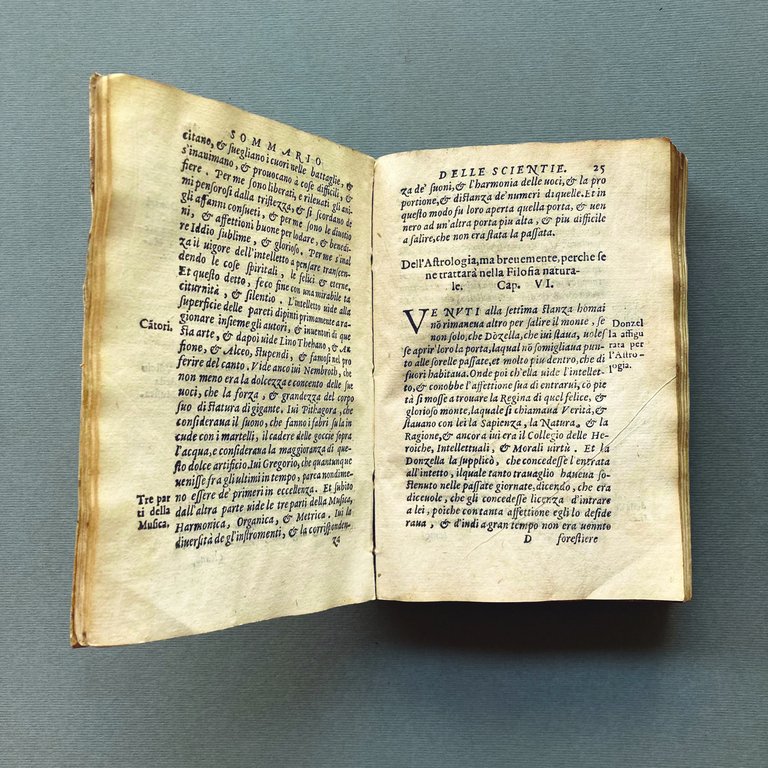 SOMMARIO
citano, & suegliano i cuori nelle battaglie, &
s'inanimano, & prouocano a cose difficili, &
fiere. Per me sono liberati, e rileuati gli ani-
mi pensorosi dalla tristezza, & si scordano de
gli affanni consueti, & per me sono le diuotio
ni, & affettioni buone per lodare, & benedi-
re Iddio sublime, & glorioso. Per me s'inal
za il uigore dell'intelletto a pensare transcen-
dendo le cose spiritali, le felici & eterne.
Et questo detto, fece fine con una mirabile ta
citurnità, & silentio. L'intelletto uide alla
superficie delle pareti dipinti primamente a ra
gionare insieme gli autori, & inuentori di que
sta arte, & dapoi uide Lino Thebano, & Ar
fione, & Alceo, stupendi, & famosi nel pro
ferire del canto. Vide anco iui Nembroth, che
non meno era la dolcezza e concento delle sue
uoci, che la forza, & grandezza del corpo
suo di statura di gigante. Iui Pithagora, che
consideraua il suono, che fanno i fabri su la in
cude con i martelli, il cadere delle goccie sopra
l'acqua, e consideraua la maggioranza di que-
sto dolce artificio. Iui Gregorio, che quantunque
uenisse fra gli ultimi tempo, parea nondime-
no essere de primeri in eccellenza. Et subito
dall'altra parte uide le tre parti della Musica,
Harmonica, Organica, & Metrica. Iui la
diuersità de gl'instromenti, & la corrisponden-
za
Cãtori.
Tre par
ti della
Musica.
DELLE SCIENTIE. 25
za de' suoni, & l'harmonia delle uoci, & la pro
portione, & distanza de' numeri di quelle. Et in
questo modo fu loro aperta quella porta, & uen
nero ad un'altra porta piu alta, & piu difficile
a salire, che non era stata la passata.
Dell'Astrologia, ma breuemente, perche se
ne trattarà nella Filosfia natura-
le. Cap. VI.
VENVTI alla settima stanza homai
nõ rimaneua altro per salire il monte, se
non solo, che Dõzella, che iui staua, uoles
se aprir loro la porta, laqual nõ somigliaua pun
to alle sorelle passate, et molto piu dentro, che di
fuori habitaua. Onde poi ch'ella uide l'intellet-
to, & conobbe l'affettione sua di entrarui, cõ pie
tà si mosse a trouare la Regina di quel felice, &
glorioso monte, laquale si chiamaua Verità, &
stauano con lei la Sapienza, la Natura, & la
Ragione, & ancora iui era il Collegio delle He-
roiche, Intellettuali, & Morali uirtù. Et la
Donzella la supplicò, che concedesse l'entrata
all'intetto, ilquale tanto trauaglio haueua so-
stenuto nelle passate giornate, dicendo, che era
diceuole, che gli concedesse licenza d'intrare
a lei, poiche con tanta affettione egli lo deside
raua, & d'indi a gran tempo non era uennto
D forestiere
Donzel
la affigu
rata per
l'Astro-
logia.